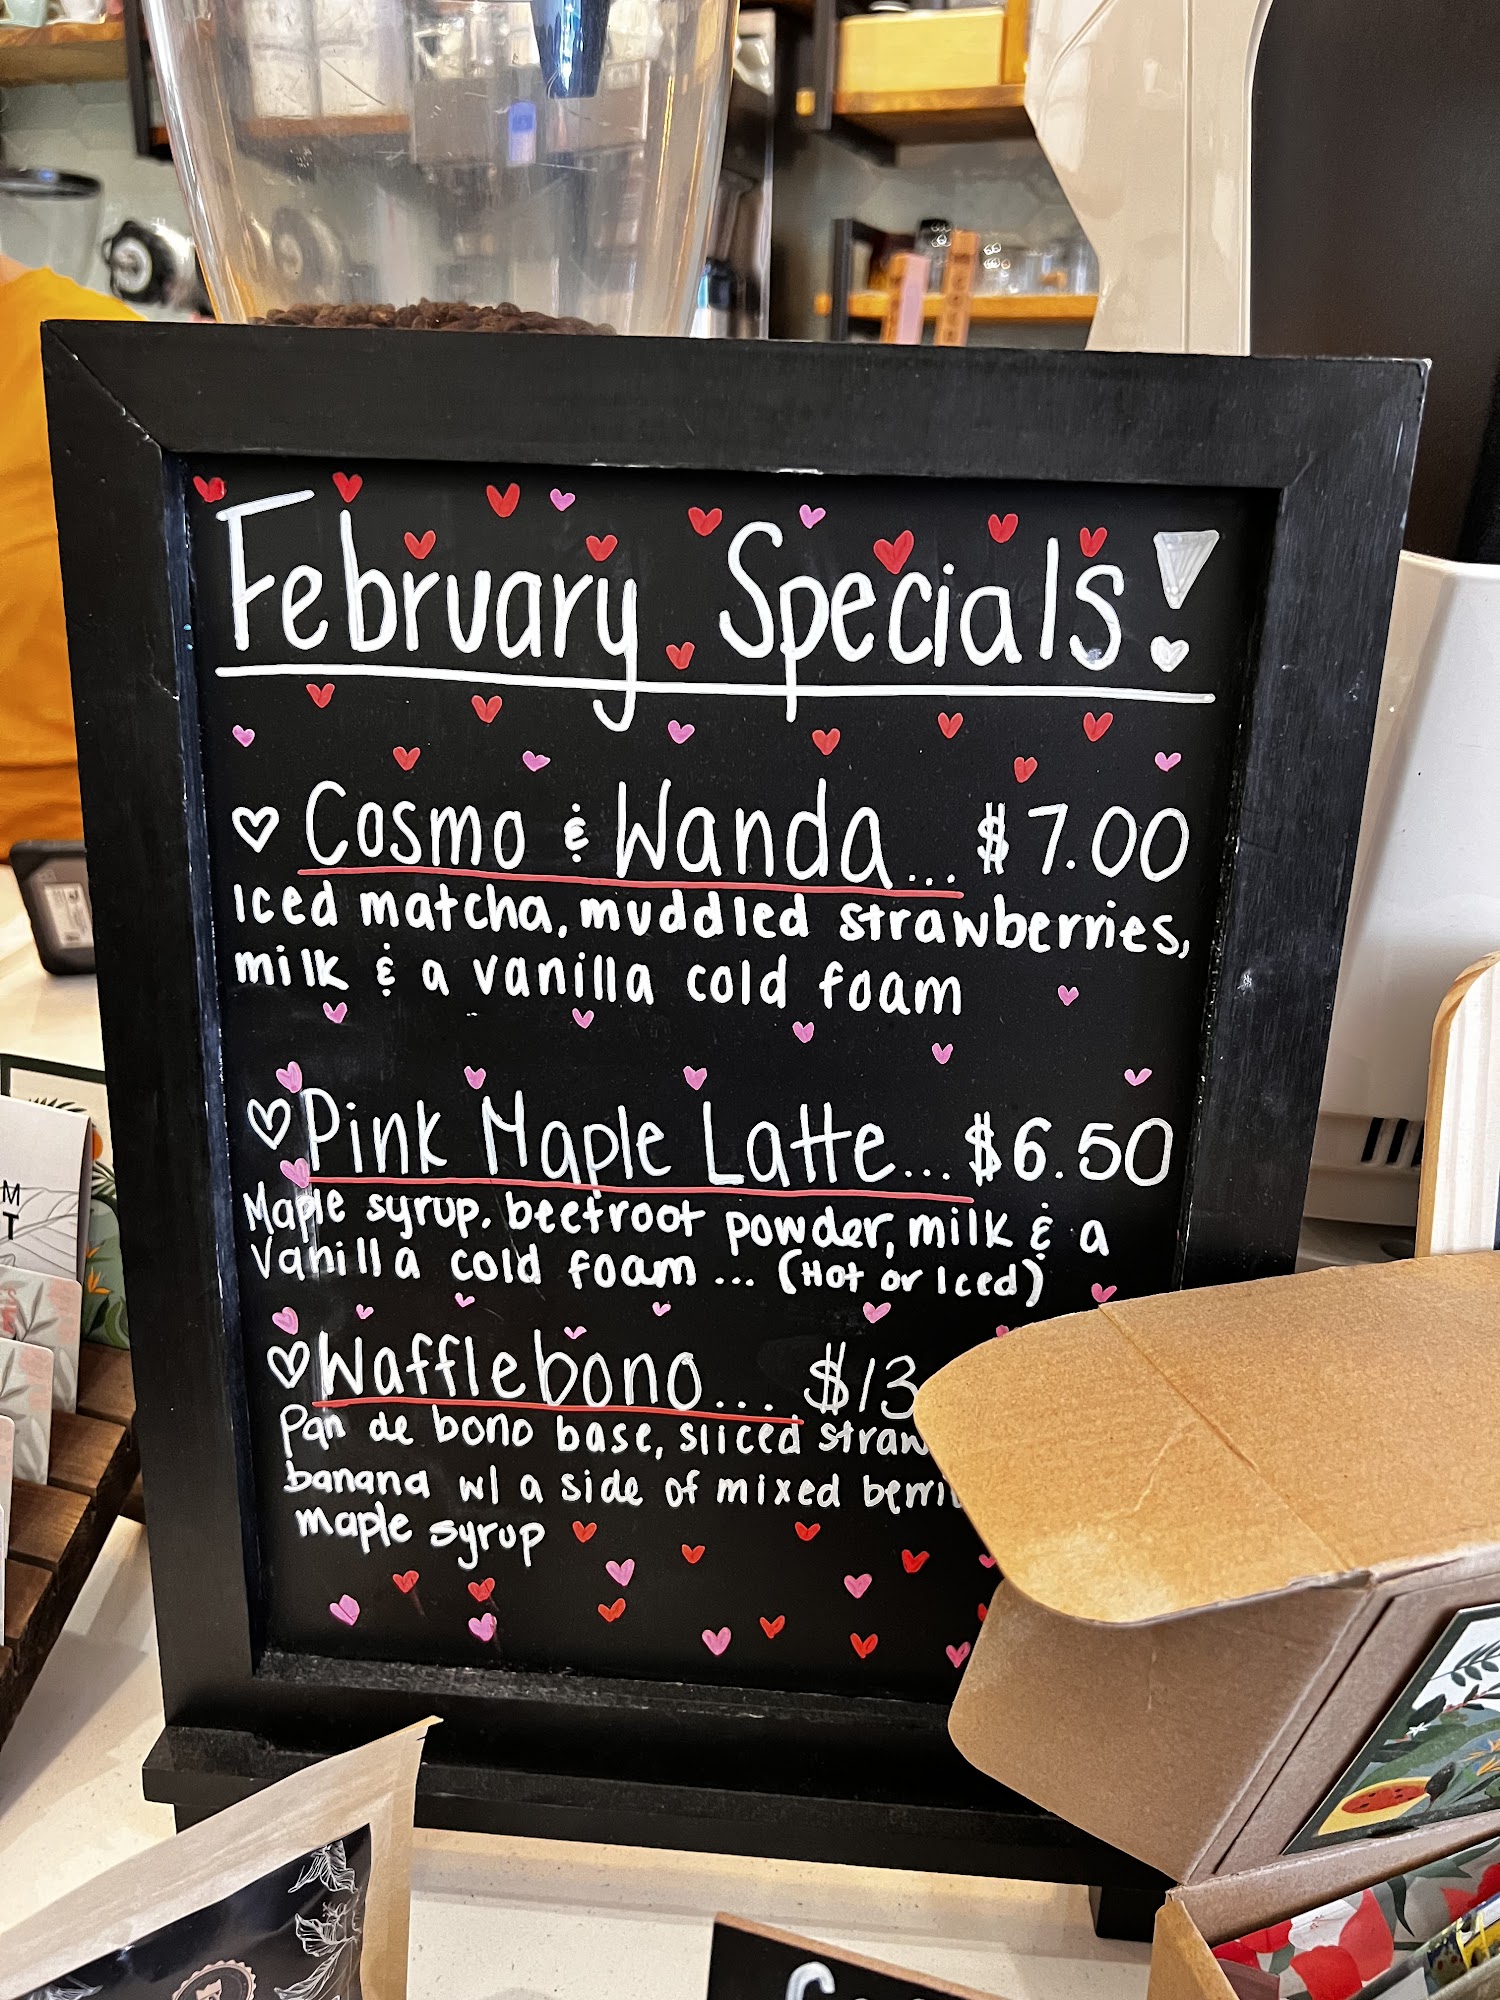 February Specials!
Cosmo & Wanda... $7.00
Iced matcha, muddled strawberries,
milk & a vanilla cold foam
Pink Maple Latte... $6.50
Maple syrup, beetroot powder, milk & a
Vanilla cold foam ... (Hot or Iced)
Wafflebono... $13
Pan de bono base, sliced
banana w/ a side of mixed
maple syrup
M
T